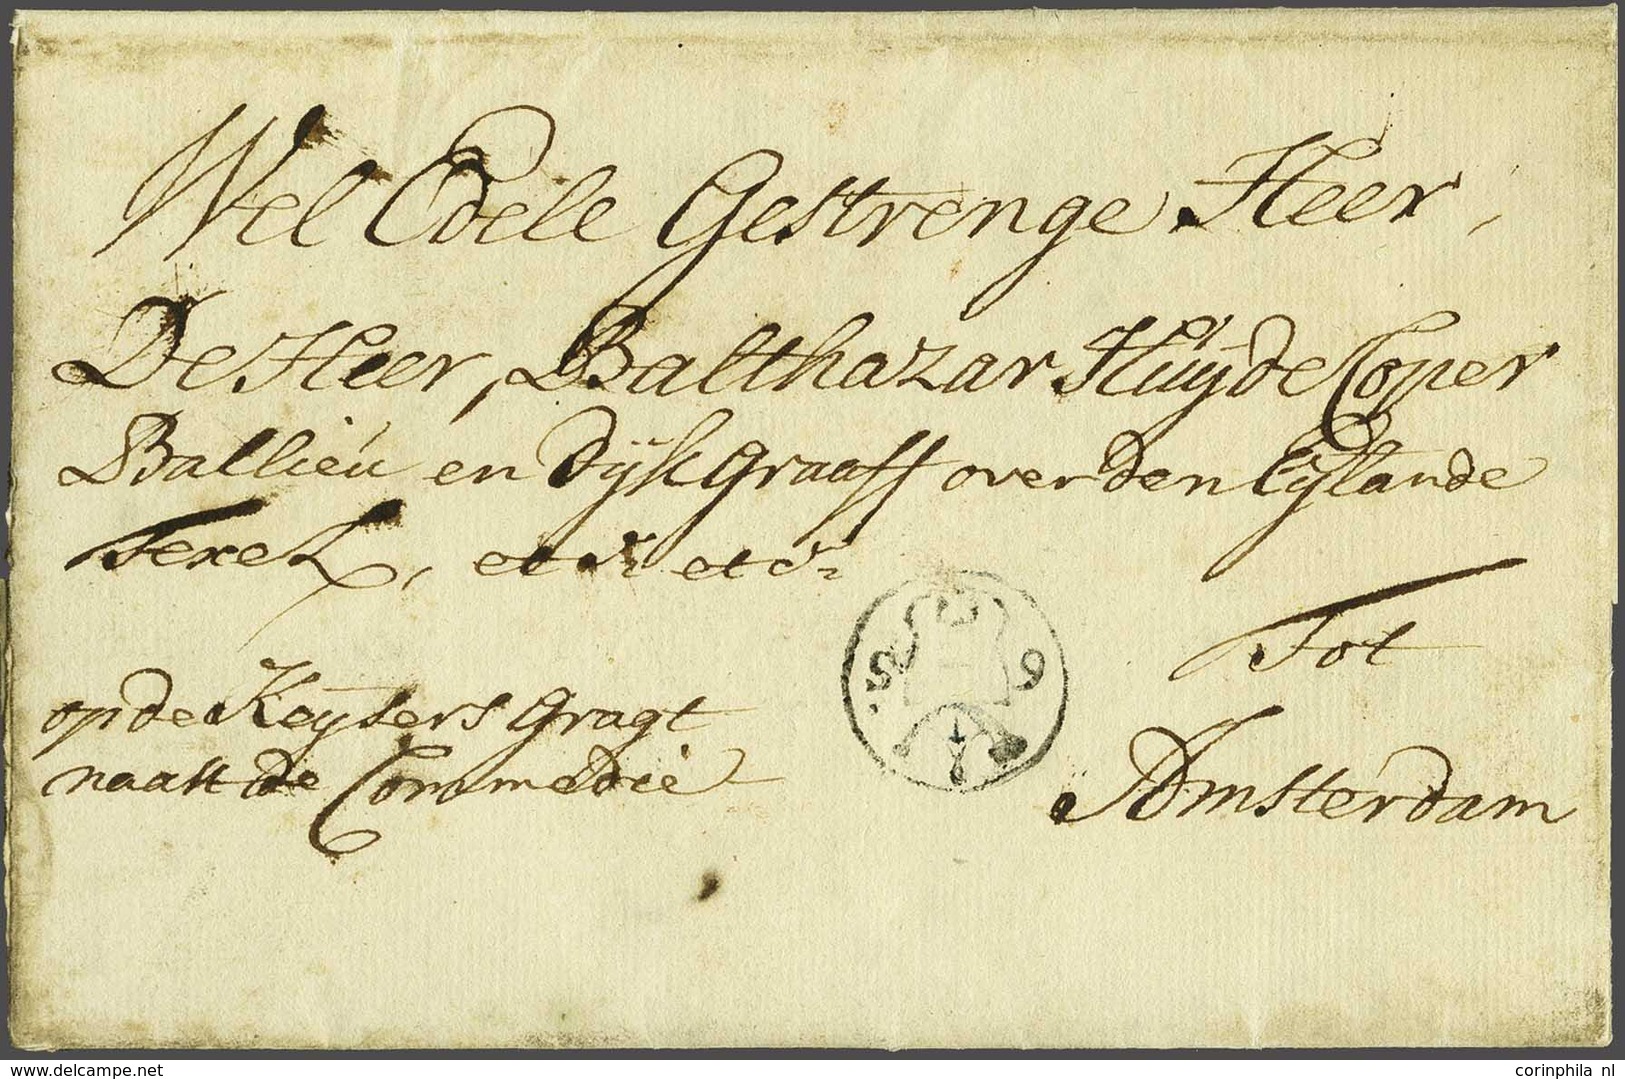 Wel Edele Gestrenge Heer,
De Heer, Balthazar Huÿde Coper
Balliéu en Dÿkgraaff over den Eÿlande
Texel, etc:r etc:r
S 6
Tot
op de Keÿsers gragt
naast de Commedie
Amsterdam
delcampe.net
corinphila nl